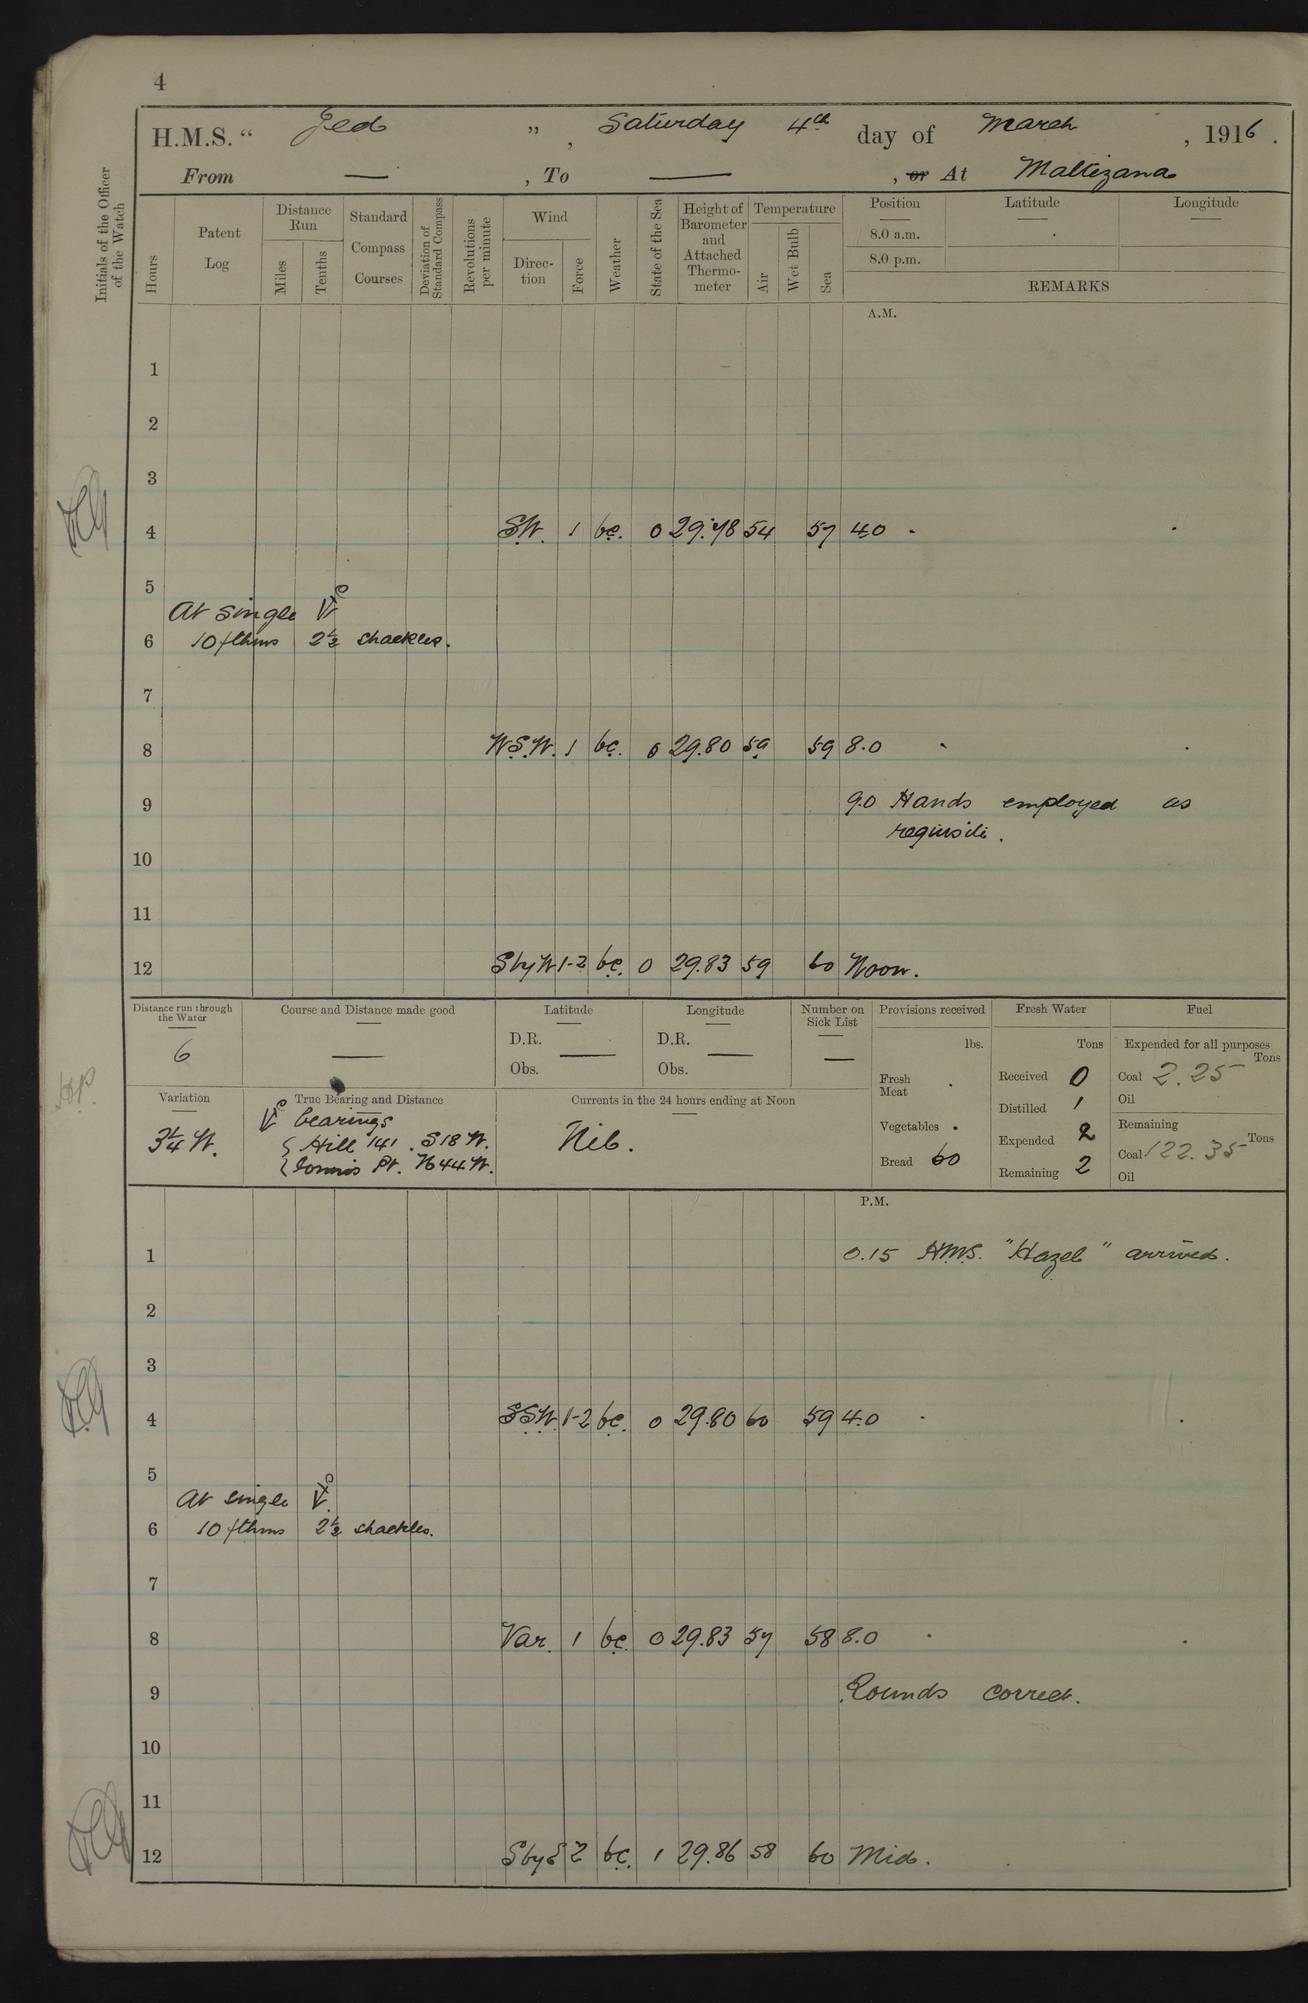 4
H.M.S. " Jed ", Saturday 4th day of March, 1916.
From — , To — , or At Maltezana
Initials of the Officer of the Watch
Hours
Patent Log
Distance Run
Miles
Tenths
Standard Compass Courses
Deviation of Standard Compass
Revolutions per minute
Wind
Direction
Force
Weather
State of the Sea
Height of Barometer and Attached Thermometer
Temperature
Air
Wet Bulb
Sea
Position
Latitude
Longitude
8.0 a.m.
8.0 p.m.
REMARKS
A.M.
1
2
3
4 S.W. 1 b.c. 0 29.78 54 57 4.0
5
At single
6 10 fthms 2½ shackles.
7
8 W.S.W. 1 b.c. 0 29.80 59 59 8.0
9 9.0 Hands employed as
requisite.
10
11
12 S by W 1-2 b.c. 0 29.83 59 60 Noon.
Distance run through the Water
6
Course and Distance made good
—
Latitude
D.R.
Obs.
—
Longitude
D.R.
Obs.
—
Number on Sick List
—
Provisions received
lbs.
Fresh Meat .
Vegetables .
Bread 60
Fresh Water
Tons
Received 0
Distilled 1
Expended 2
Remaining 2
Fuel
Expended for all purposes
Tons
Coal 2.25
Oil
Remaining
Tons
Coal 122.35
Oil
Variation
3¼ W.
True Bearing and Distance
bearings
Hill 141. S 18 W.
Pt. N 44 W.
Currents in the 24 hours ending at Noon
Nil.
P.M.
1 0.15 H.M.S. "Hazel" arrived.
2
3
4 S.S.W. 1-2 b.c. 0 29.80 60 59 4.0
5
At single
6 10 fthms 2½ shackles.
7
8 Var. 1 b.c. 0 29.83 57 58 8.0
9 Rounds correct.
10
11
12 S by E 2 b.c. 1 29.86 58 60 Mid.